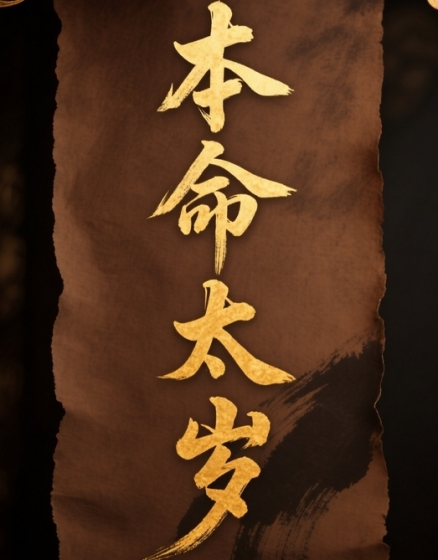 本命太岁